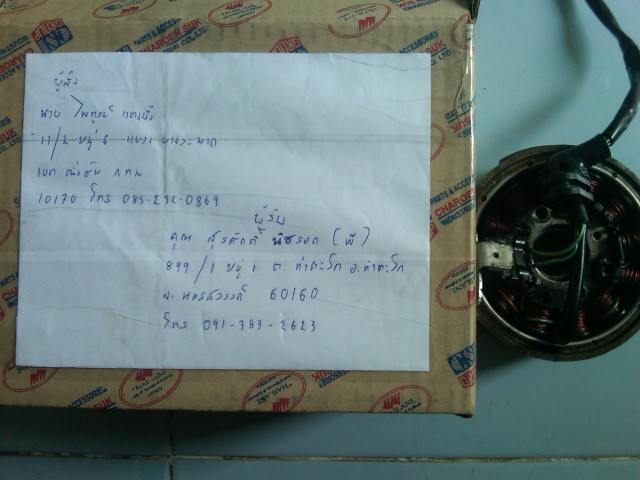 ผู้ส่ง
นาย ไพฑูรย์ แตงผึ้ง
11/2 หมู่ 6 แขวง บางระมาด
เขต ตลิ่งชัน กทม
10170 โทร 085-252-0869
ผู้รับ
คุณ สุรศักดิ์ นิชรอด (พี)
899/1 หมู่ 1 ต. ท่าตะโก อ.ท่าตะโก
จ. นครสวรรค์ 60160
โทร 091-383-2623
PARTS & ACCESSORIES
CHAROEN SUK
INDUSTRIAL CO.,LTD.